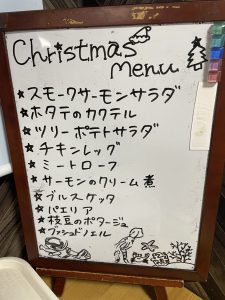 Christmas
Menu
★スモークサーモンサラダ
★ホタテのカクテル
★ツリーポテトサラダ
★チキンレッグ
★ミートローフ
★サーモンのクリーム煮
★ブルスケッタ
★パエリア
★枝豆のポタージュ
★ブッシュドノエル